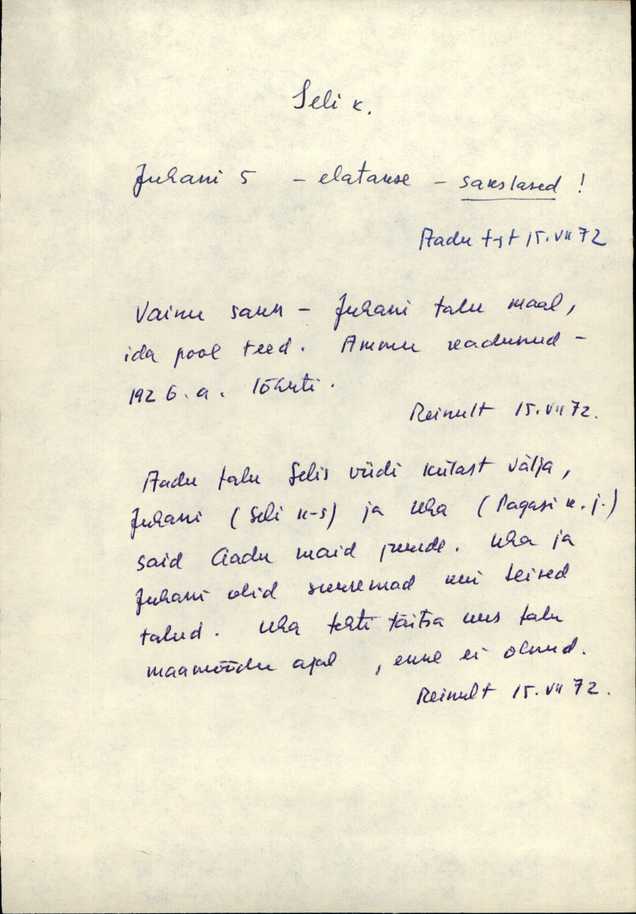 Seli k.
Juhani 5 – elatanse – sakslased !
Aadu t-st 15. VII 72
Vainu saun – Juhani talu maal,
ida pool teed. Ammu kadunud –
1926. a. lõhuti.
Reinult 15. VII 72.
Aadu talu Selis viidi külast välja,
Juhani (Seli k-s) ja Uha (Pagasi k. j.)
said Aadu maid juurde. Uha ja
Juhani olid suuremad kui teised
talud. Uha tehti täitsa uus talu
maamõõdu ajal, enne ei olnud.
Reinult 15. VII 72.